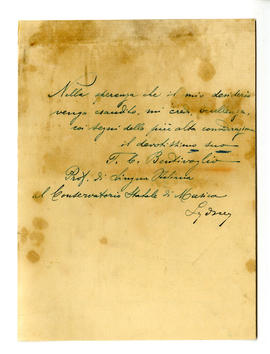 Nella speranza che il mio desiderio
venga esaudito, mi creda, eccellenza,
coi segni della più alta considerazione
il devotissimo suo
T. C. Bentivoglio
Prof. di Lingua Italiana
al Conservatorio Statale di Musica
Sydney